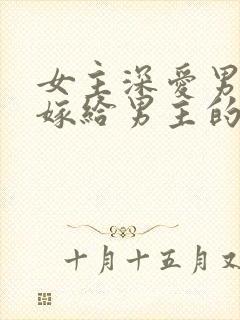 女主深爱男
嫁给男主的
十月十五月又